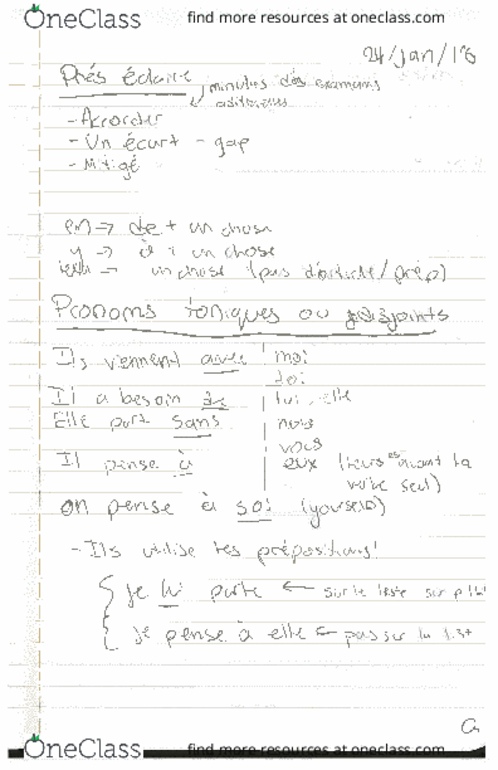 OneClass find more resources at oneclass.com
24/Jan/16
Prés éclaire minutes des examens
- Accorder
- Un écart - gap
- Mitigé
en → de + un chose
y → à + un chose
→ un chose (pas d'article/prép)
Pronoms toniques ou
Ils viennent avec moi
toi
Il a besoin de lui, elle
Elle part sans nous
vous
Il pense à eux (leurs avant la
seul)
on pense à soi (yourself)
- Ils utilise les prépositions!
je lui parle ← sur le teste sur p
je pense à elle ← pas sur la
OneClass find more resources at oneclass.com